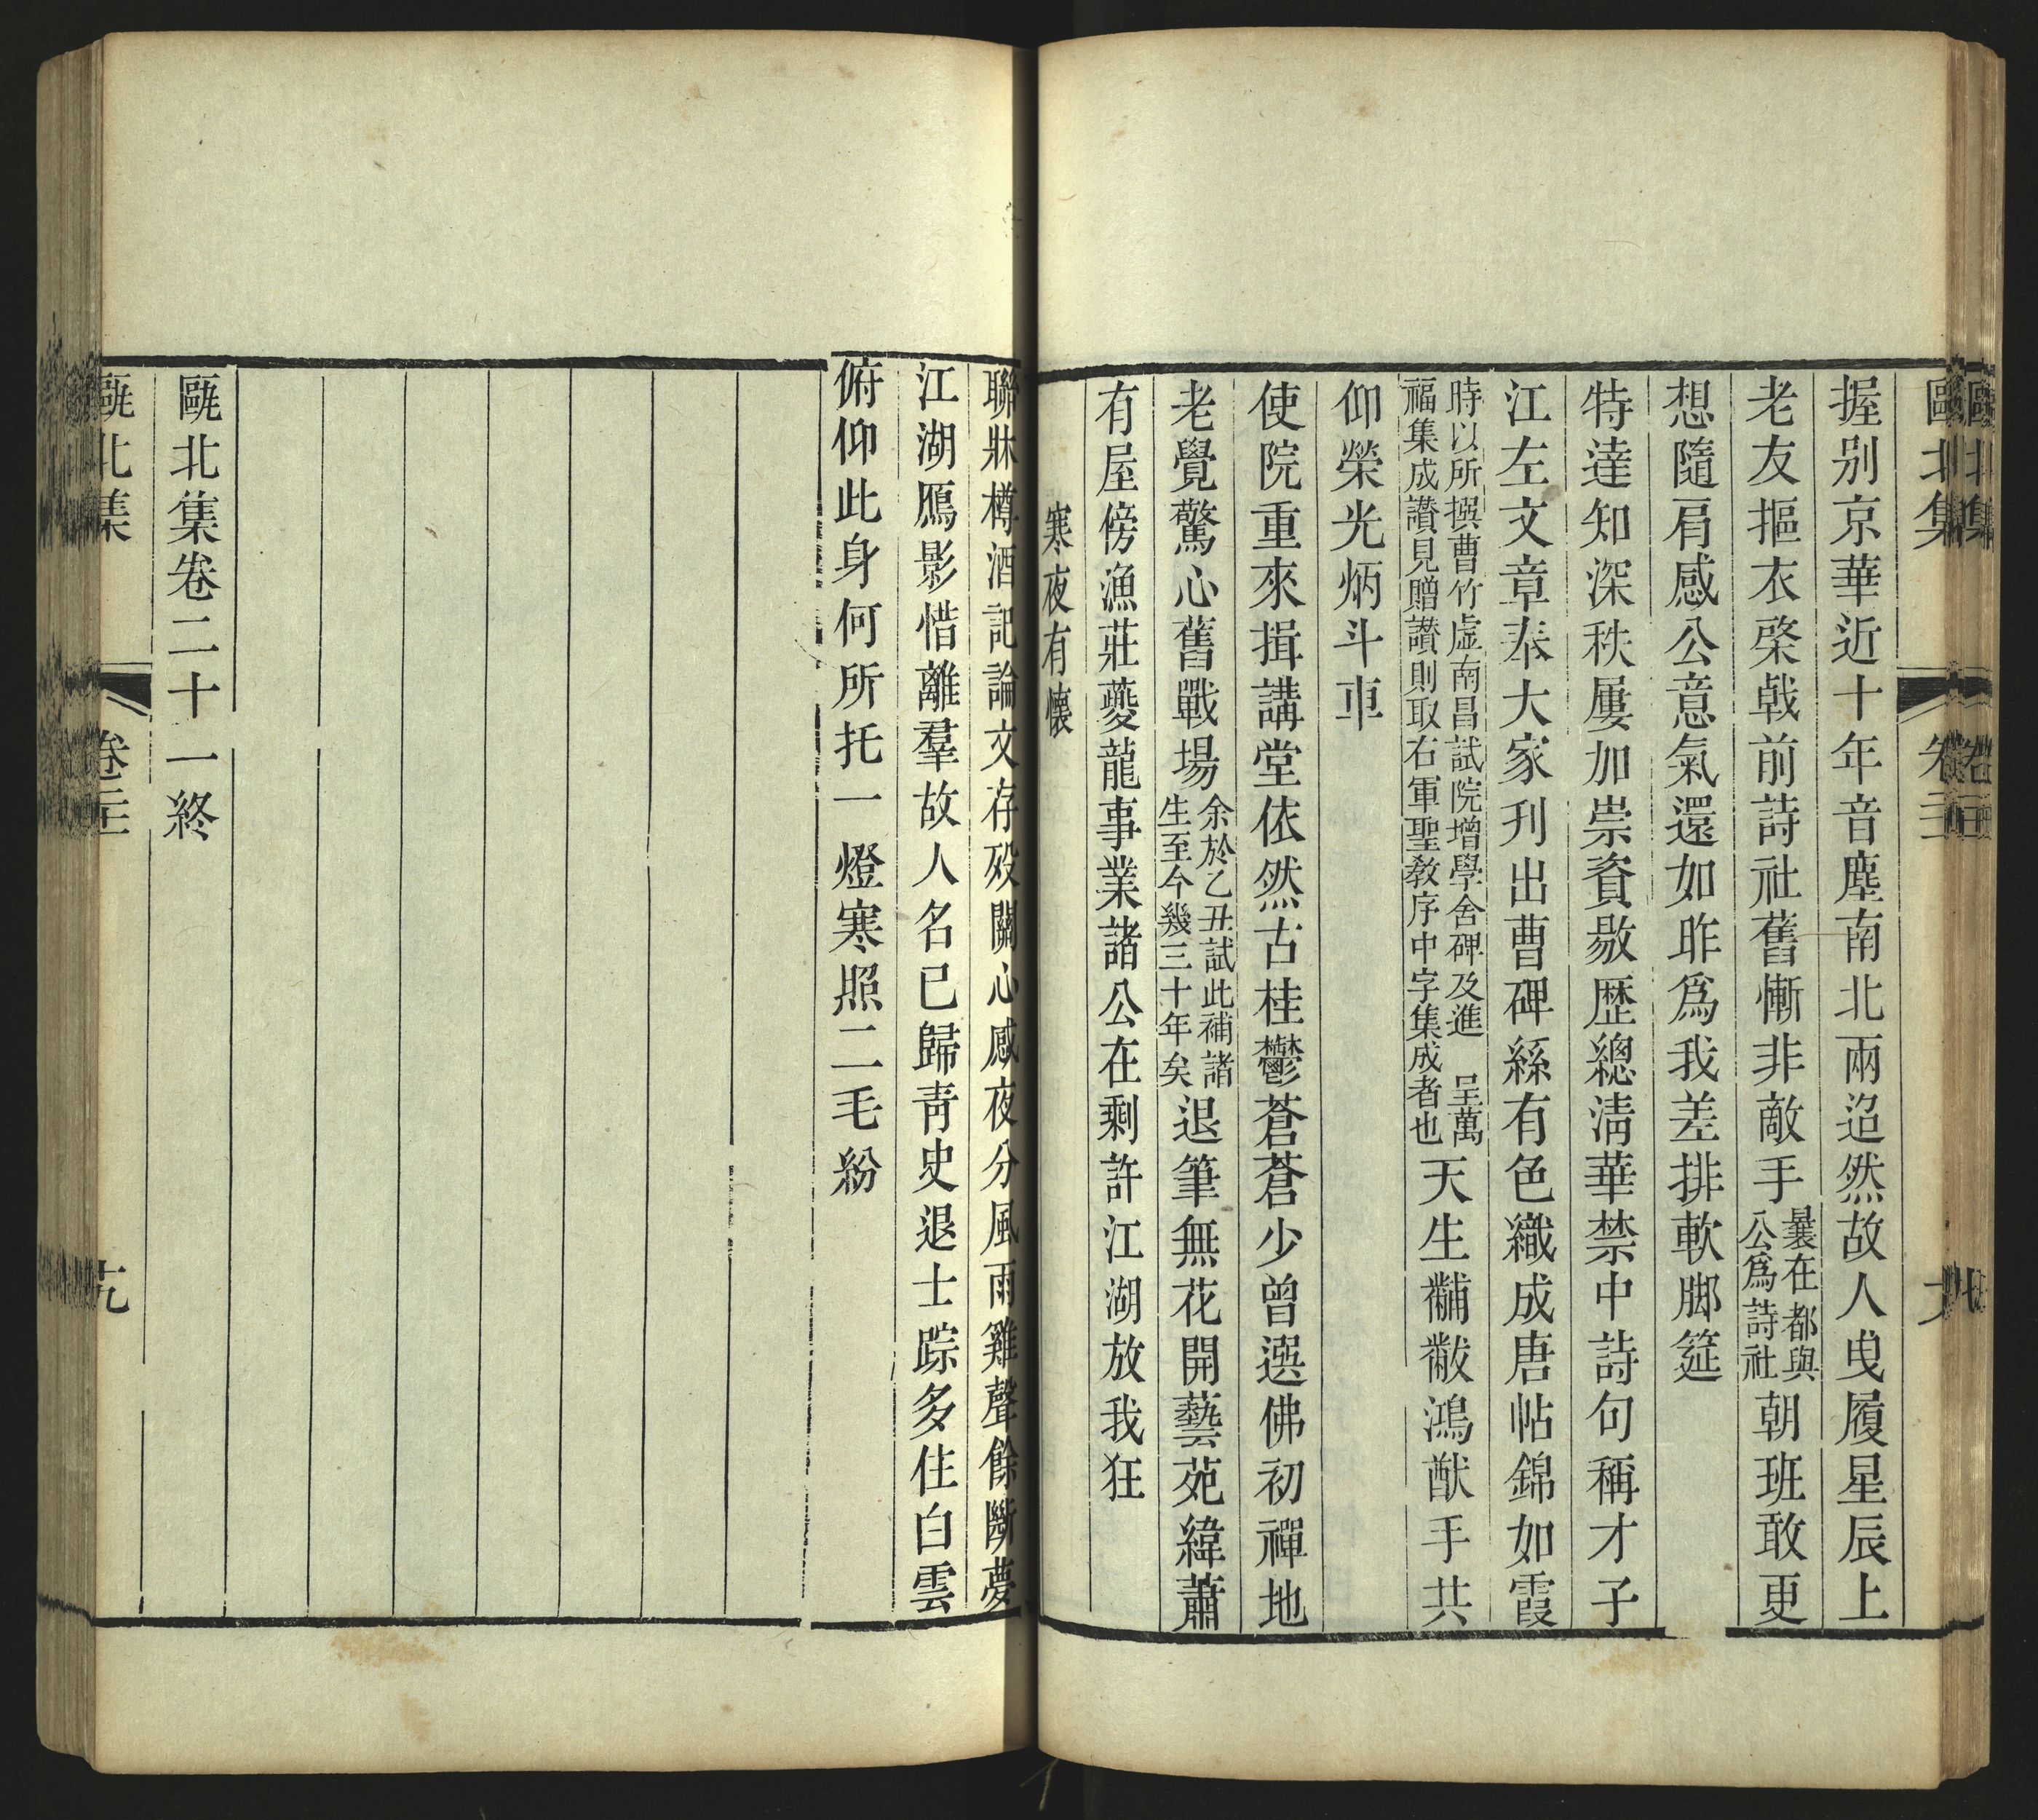 甌北集 卷二十一
握別京華近十年音塵南北兩迢然故人曳履星辰上
老友摳衣棨戟前詩社舊慚非敵手曩在都與公爲詩社朝班敢更
想隨肩感公意氣還如昨爲我差排軟脚筵
特達知深秩屢加崇資敭歷總淸華禁中詩句稱才子
江左文章奉大家刋出曹碑絲有色織成唐帖錦如霞
時以所撰曹竹虛南昌試院增學舍碑及進 呈萬
福集成讚見贈讚則取右軍聖敎序中字集成者也天生黼黻鴻猷手共
仰榮光炳斗車
使院重來揖講堂依然古桂鬱蒼蒼少曾選佛初禪地
老覺驚心舊戰場余於乙丑試此補諸生至今幾三十年矣退筆無花開藝苑緯蕭
有屋傍漁莊夔龍事業諸公在剩許江湖放我狂
寒夜有懷
聯牀樽酒記論文存歿關心感夜分風雨雞聲餘斷夢
江湖鴈影惜離羣故人名已歸靑史退士踪多住白雲
俯仰此身何所托一燈寒照二毛紛
甌北集卷二十一終
甌北集 卷二十一